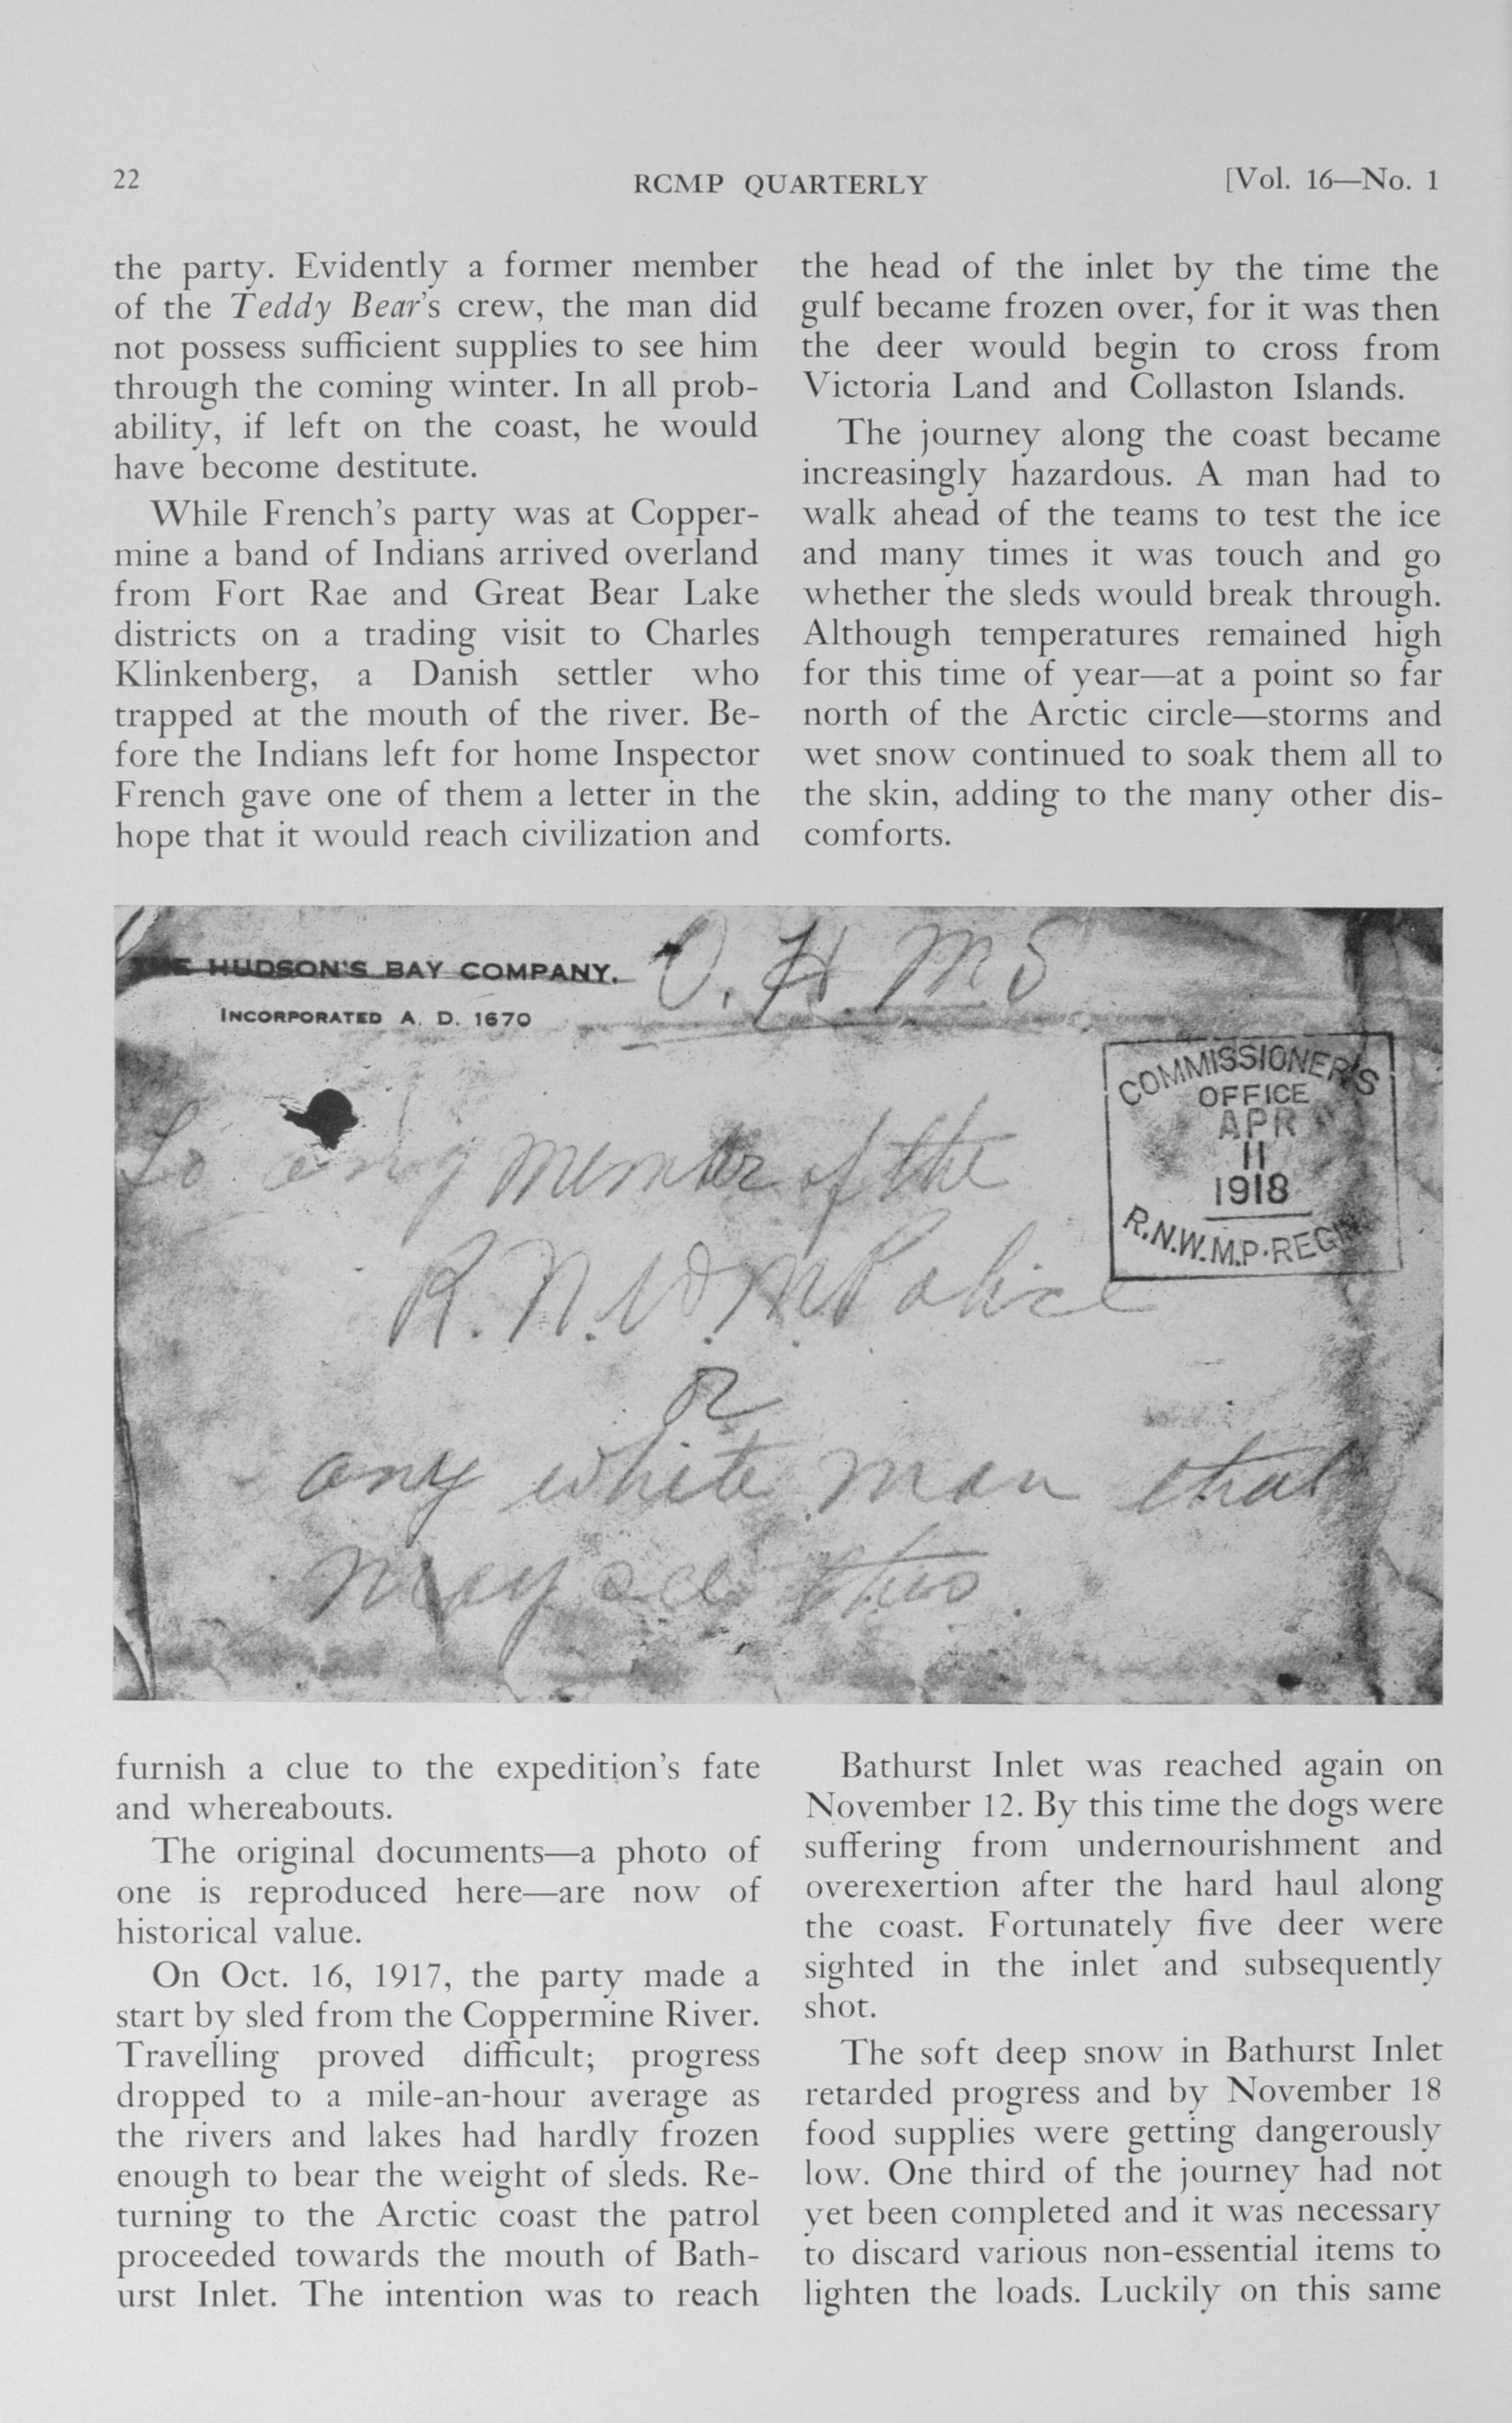 22
RCMP QUARTERLY
[Vol. 16—No. 1
the party. Evidently a former member
of the Teddy Bear's crew, the man did
not possess sufficient supplies to see him
through the coming winter. In all prob-
ability, if left on the coast, he would
have become destitute.
While French's party was at Copper-
mine a band of Indians arrived overland
from Fort Rae and Great Bear Lake
districts on a trading visit to Charles
Klinkenberg, a Danish settler who
trapped at the mouth of the river. Be-
fore the Indians left for home Inspector
French gave one of them a letter in the
hope that it would reach civilization and
the head of the inlet by the time the
gulf became frozen over, for it was then
the deer would begin to cross from
Victoria Land and Collaston Islands.
The journey along the coast became
increasingly hazardous. A man had to
walk ahead of the teams to test the ice
and many times it was touch and go
whether the sleds would break through.
Although temperatures remained high
for this time of year—at a point so far
north of the Arctic circle—storms and
wet snow continued to soak them all to
the skin, adding to the many other dis-
comforts.
THE HUDSON'S BAY COMPANY.
INCORPORATED A. D. 1670
O. H. M S
COMMISSIONER'S
OFFICE
APR
11
1918
R.N.W.M.P. REGINA
To any member of the
R. N. W. M. Police
or
any white man that
may see this.
furnish a clue to the expedition's fate
and whereabouts.
The original documents—a photo of
one is reproduced here—are now of
historical value.
On Oct. 16, 1917, the party made a
start by sled from the Coppermine River.
Travelling proved difficult; progress
dropped to a mile-an-hour average as
the rivers and lakes had hardly frozen
enough to bear the weight of sleds. Re-
turning to the Arctic coast the patrol
proceeded towards the mouth of Bath-
urst Inlet. The intention was to reach
Bathurst Inlet was reached again on
November 12. By this time the dogs were
suffering from undernourishment and
overexertion after the hard haul along
the coast. Fortunately five deer were
sighted in the inlet and subsequently
shot.
The soft deep snow in Bathurst Inlet
retarded progress and by November 18
food supplies were getting dangerously
low. One third of the journey had not
yet been completed and it was necessary
to discard various non-essential items to
lighten the loads. Luckily on this same